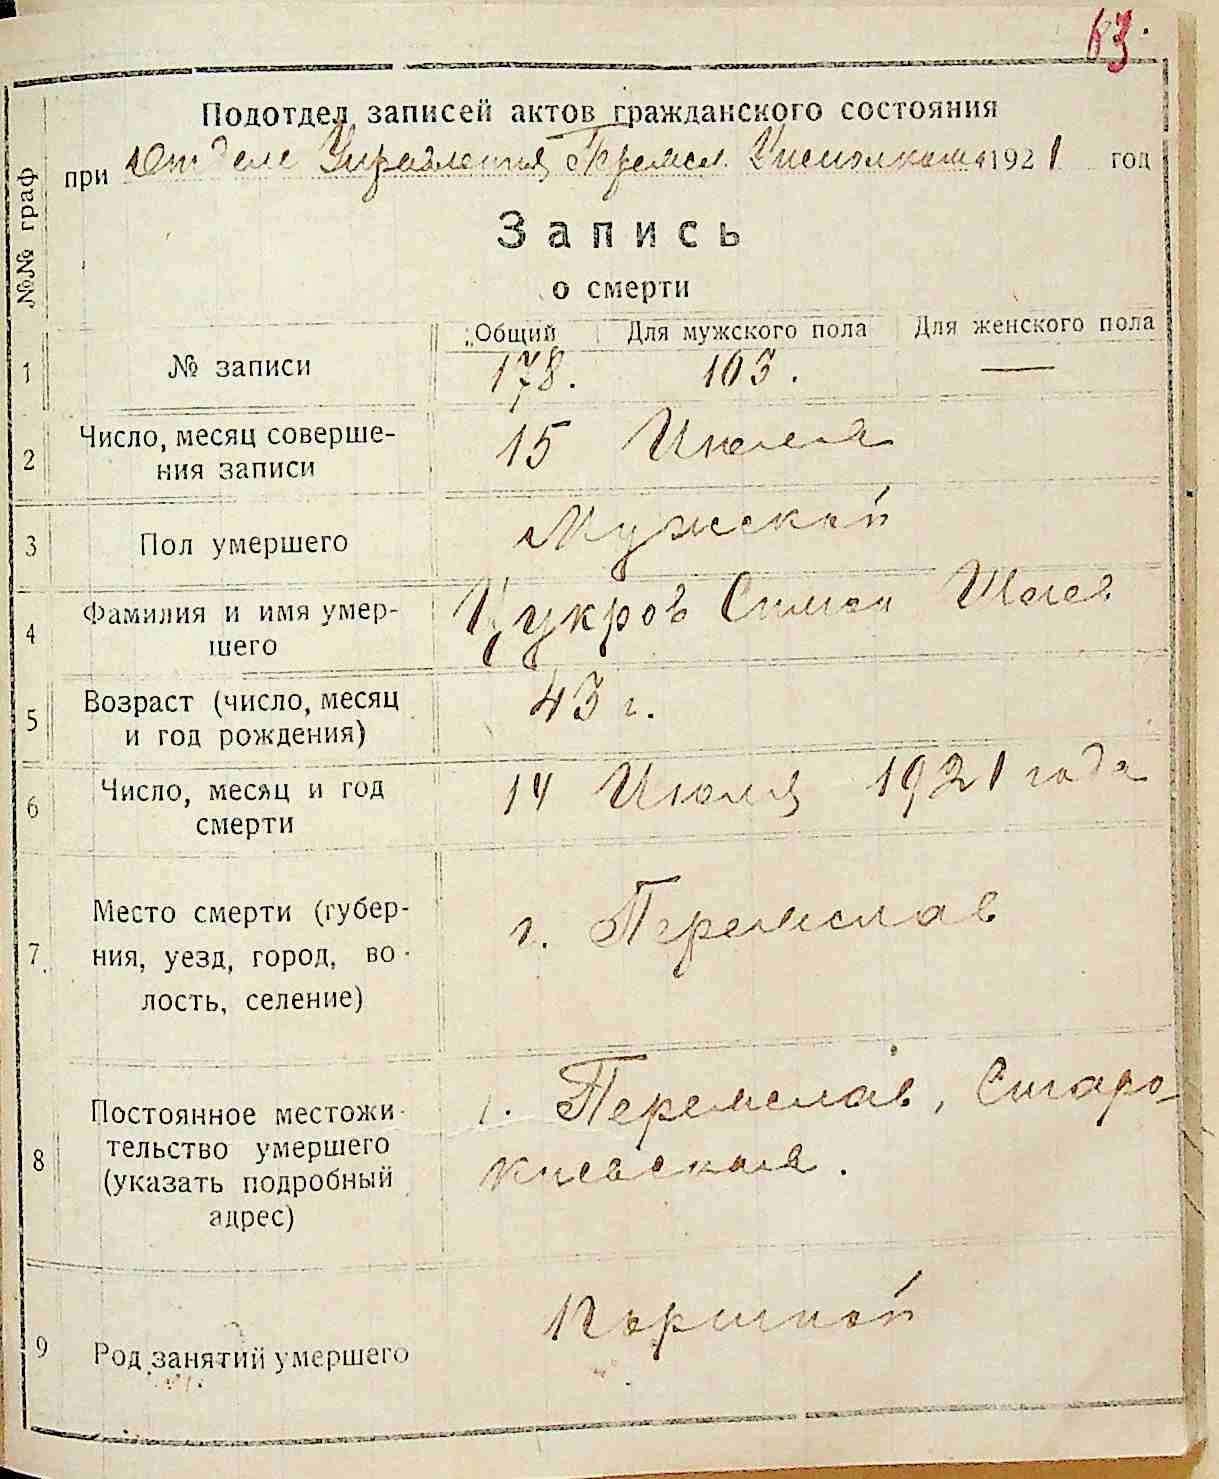 63.
Подотдел записей актов гражданского состояния
при Отделе Управления Перяесл. Исполкома 1921 год
№№ граф
Запись
о смерти
Общий Для мужского пола Для женского пола
1 № записи 178. 103. —
2 Число, месяц соверше-
ния записи 15 Июля
3 Пол умершего Мужской
4 Фамилия и имя умер-
шего Цукров Симон
5 Возраст (число, месяц
и год рождения) 43 г.
6 Число, месяц и год
смерти 14 Июля 1921 года
7 Место смерти (губер-
ния, уезд, город, во-
лость, селение) г. Переяслав
8 Постоянное местожи-
тельство умершего
(указать подробный
адрес) г. Переяслав,
киевская.
9 Род занятий умершего